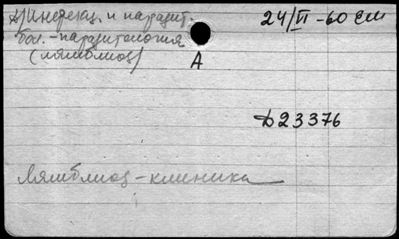 д) Инфекц. и паразит. 24/VI-60 см
бол. - паразитология
(лямблиоз) А
Д23376
Лямблиоз - клиника